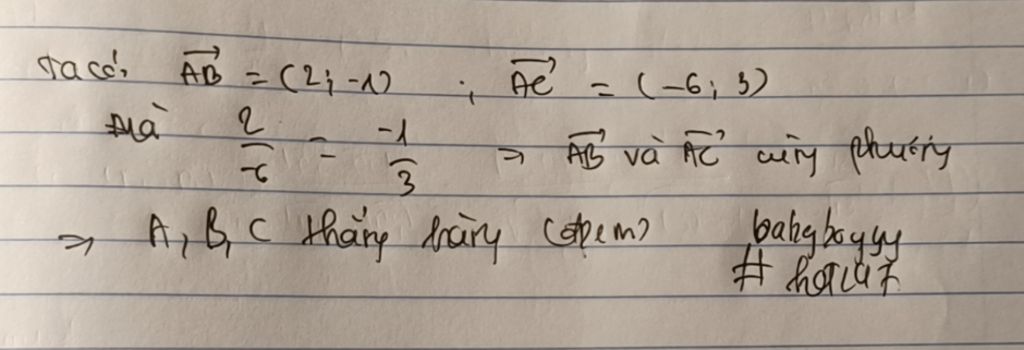 Ta có: AB→ = (2; -1) ; AC→ = (-6; 3)
Mà 2/-6 = -1/3 => AB→ và AC→ cùng phương
=> A, B, C thẳng hàng (đpcm)
babyboyyy